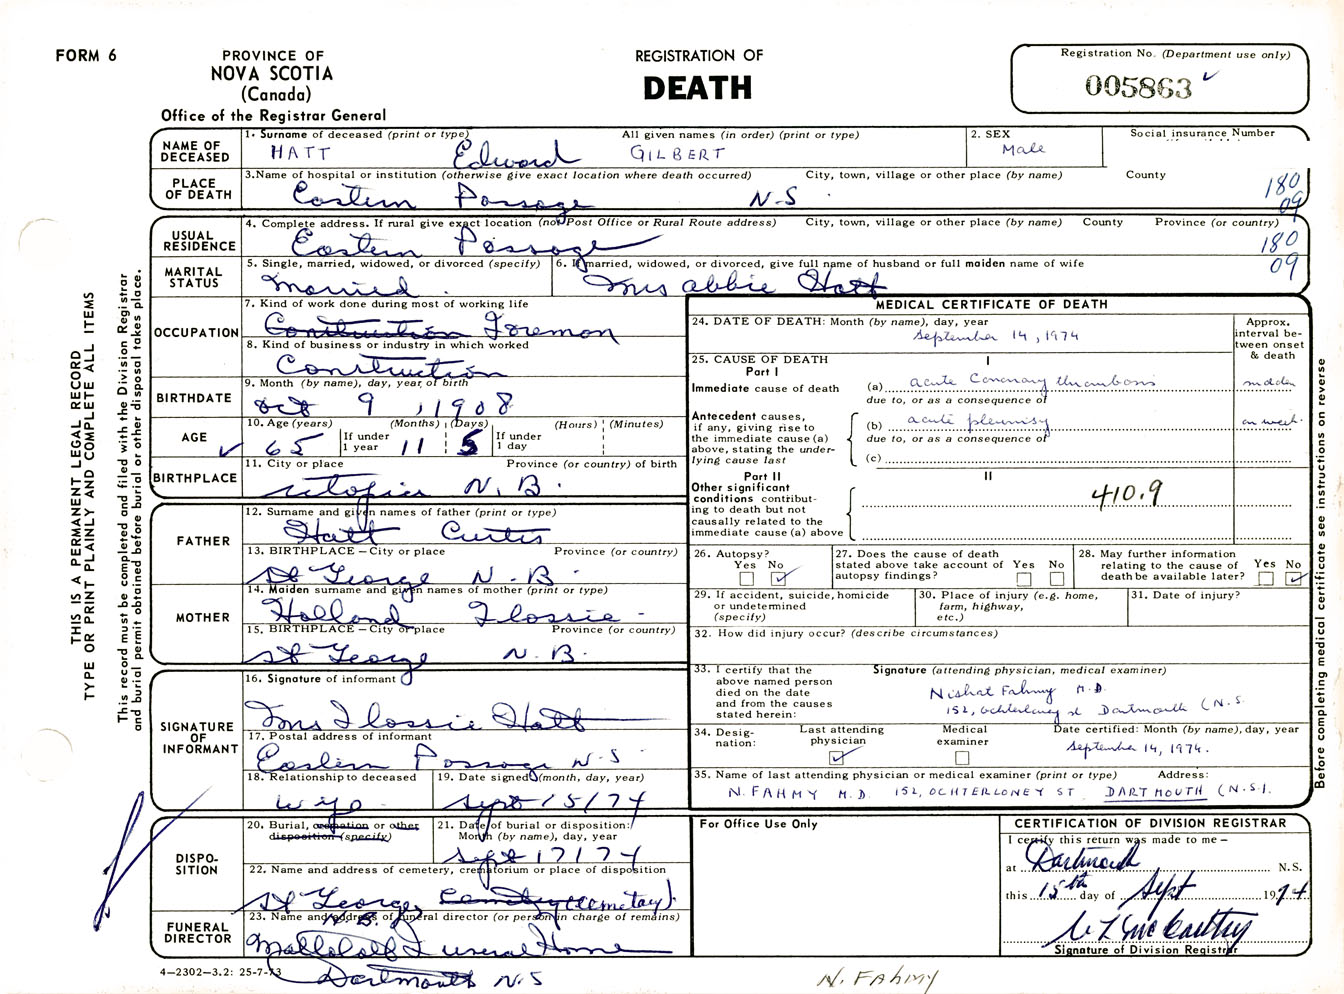 FORM 6
PROVINCE OF
NOVA SCOTIA
(Canada)
Office of the Registrar General
REGISTRATION OF
DEATH
Registration No. (Department use only)
005863
NAME OF DECEASED
1. Surname of deceased (print or type) All given names (in order) (print or type)
HATT Edward GILBERT
2. SEX
Male
Social insurance Number
PLACE OF DEATH
3.Name of hospital or institution (otherwise give exact location where death occurred) City, town, village or other place (by name) County
Eastern Passage N.S
180
09
USUAL RESIDENCE
4. Complete address. If rural give exact location (not Post Office or Rural Route address) City, town, village or other place (by name) County Province (or country)
Eastern Passage
180
09
MARITAL STATUS
5. Single, married, widowed, or divorced (specify)
married
6. If married, widowed, or divorced, give full name of husband or full maiden name of wife
Mrs abbie Hatt
OCCUPATION
7. Kind of work done during most of working life
Construction Foreman
8. Kind of business or industry in which worked
Construction
BIRTHDATE
9. Month (by name), day, year, of birth
Oct 9, 1908
AGE
10. Age (years) (Months) (Days) (Hours) (Minutes)
65 If under 1 year 11 5 If under 1 day
BIRTHPLACE
11. City or place Province (or country) of birth
utopia N.B.
FATHER
12. Surname and given names of father (print or type)
Hatt Curtis
13. BIRTHPLACE – City or place Province (or country)
St George N.B.
MOTHER
14. Maiden surname and given names of mother (print or type)
Holland Flossie
15. BIRTHPLACE – City or place Province (or country)
St George N.B.
SIGNATURE OF INFORMANT
16. Signature of informant
Mrs Flossie Hatt
17. Postal address of informant
Eastern Passage N.S
18. Relationship to deceased
wife
19. Date signed (month, day, year)
Sept 15/74
DISPOSITION
20. Burial, cremation or other disposition (specify)
21. Date of burial or disposition: Month (by name), day, year
Sept 17/74
22. Name and address of cemetery, crematorium or place of disposition
St George Cemetary
N.B.
FUNERAL DIRECTOR
23. Name and address of funeral director (or person in charge of remains)
Funeral Home
Dartmouth N.S
4–2302–3.2: 25-7-73
MEDICAL CERTIFICATE OF DEATH
24. DATE OF DEATH: Month (by name), day, year
September 14, 1974
Approx. interval between onset & death
25. CAUSE OF DEATH
Part I
I
Immediate cause of death
(a) acute Coronary thrombosis sudden
due to, or as a consequence of
Antecedent causes, if any, giving rise to the immediate cause (a) above, stating the underlying cause last
(b) acute pleurisy week
due to, or as a consequence of
(c)
Part II
II
Other significant conditions contributing to death but not causally related to the immediate cause (a) above
410.9
26. Autopsy? Yes No
27. Does the cause of death stated above take account of autopsy findings? Yes No
28. May further information relating to the cause of death be available later? Yes No
29. If accident, suicide, homicide or undetermined (specify)
30. Place of injury (e.g. home, farm, highway, etc.)
31. Date of injury?
32. How did injury occur? (describe circumstances)
33. I certify that the above named person died on the date and from the causes stated herein:
Signature (attending physician, medical examiner)
Nishat Fahmy M.D.
152, Ochterloney st Dartmouth (N.S.
34. Designation:
Last attending physician
Medical examiner
Date certified: Month (by name), day, year
September 14, 1974.
35. Name of last attending physician or medical examiner (print or type) Address:
N. FAHMY M.D. 152, OCHTERLONEY ST DARTMOUTH (N.S).
For Office Use Only
CERTIFICATION OF DIVISION REGISTRAR
I certify this return was made to me –
at Dartmouth N.S.
this 15th day of Sept 1974
McCarthy
Signature of Division Registrar
N. FAHMY
THIS IS A PERMANENT LEGAL RECORD
TYPE OR PRINT PLAINLY AND COMPLETE ALL ITEMS
This record must be completed and filed with the Division Registrar
and burial permit obtained before burial or other disposal takes place.
Before completing medical certificate see instructions on reverse